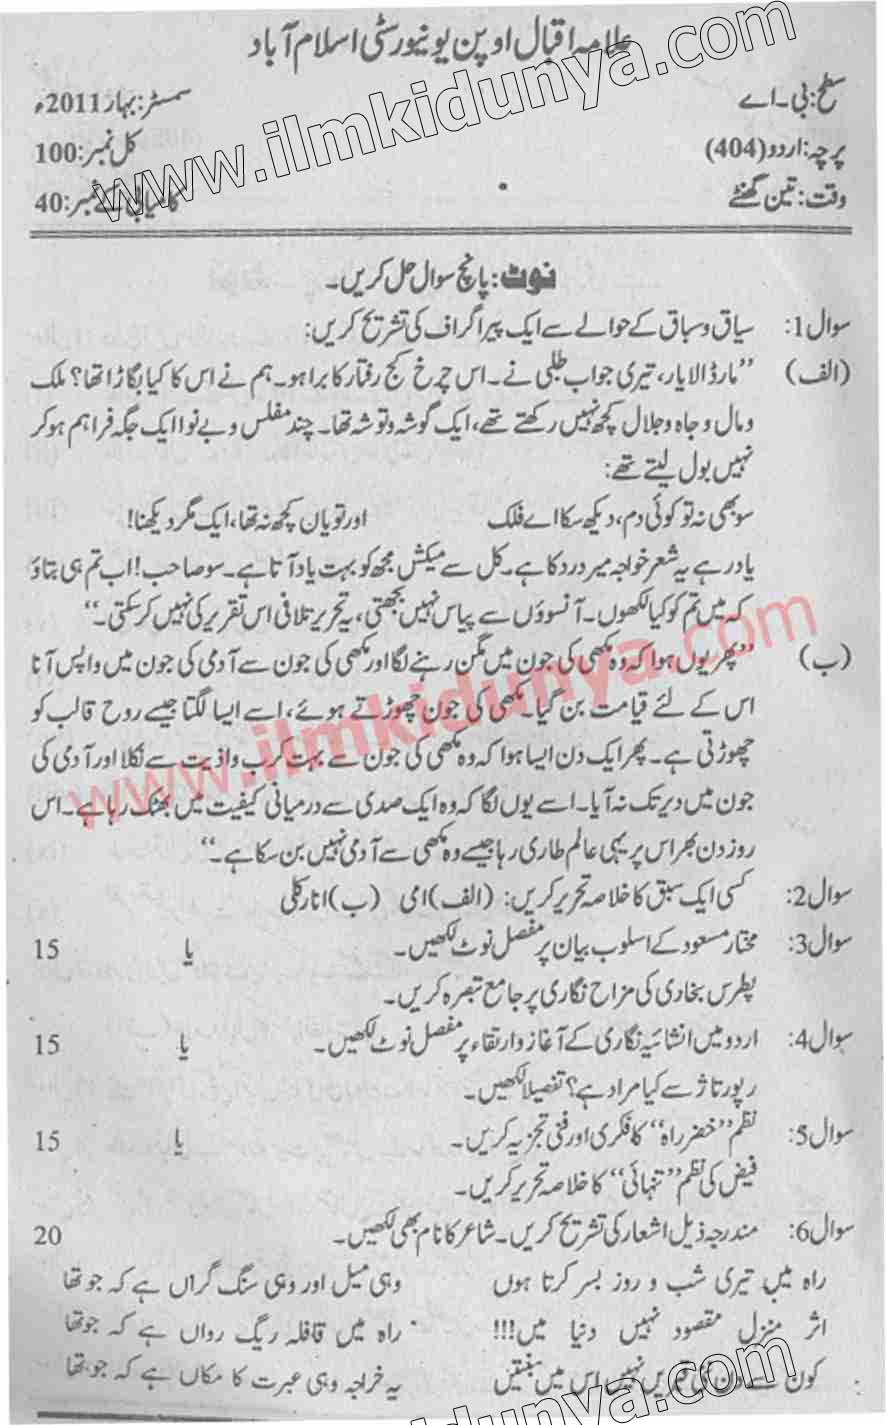 علامہ اقبال اوپن یونیورسٹی اسلام آباد
سطح: بی۔اے سمسٹر: بہار 2011ء
پرچہ: اردو (404) کل نمبر: 100
وقت: تین گھنٹے کامیابی کے نمبر: 40
www.ilmkidunya.com
نوٹ: پانچ سوال حل کریں۔
سوال 1: سیاق و سباق کے حوالے سے ایک پیراگراف کی تشریح کریں:
(الف) ”مار ڈالا یار، تیری جواب طلبی نے۔ اس چرخ کج رفتار کا برا ہو۔ ہم نے اس کا کیا بگاڑا تھا؟ ملک
و مال و جاہ و جلال کچھ نہیں رکھتے تھے، ایک گوشہ و توشہ تھا۔ چند مفلس و بے نوا ایک جگہ فراہم ہو کر
نہیں بول لیتے تھے:
سو بھی نہ تو کوئی دم، دیکھ سکا اے فلک اور تو یاں کچھ نہ تھا، ایک مگر دیکھنا!
یاد رہے یہ شعر خواجہ میر درد کا ہے۔ کل سے میکش مجھ کو بہت یاد آتا ہے۔ سو صاحب! اب تم ہی بتاؤ
کہ میں تم کو کیا لکھوں۔ آنسوؤں سے پیاس نہیں بجھتی، یہ تحریر تلافی اس تقریر کی نہیں کر سکتی۔“
(ب) ”پھر یوں ہوا کہ وہ مکھی کی جون میں مگن رہنے لگا اور مکھی کی جون سے آدمی کی جون میں واپس آنا
اس کے لئے قیامت بن گیا۔ مکھی کی جون چھوڑتے ہوئے، اسے ایسا لگتا جیسے روح قالب کو
چھوڑتی ہے۔ پھر ایک دن ایسا ہوا کہ وہ مکھی کی جون سے بہت کرب و اذیت سے نکلا اور آدمی کی
جون میں دیر تک نہ آیا۔ اسے یوں لگا کہ وہ ایک صدی سے درمیانی کیفیت میں بھٹک رہا ہے۔ اس
روز دن بھر اس پر یہی عالم طاری رہا جیسے وہ مکھی سے آدمی نہیں بن سکا ہے۔“
www.ilmkidunya.com
سوال 2: کسی ایک سبق کا خلاصہ تحریر کریں: (الف) امی (ب) انارکلی
سوال 3: مختار مسعود کے اسلوب بیان پر مفصل نوٹ لکھیں۔ یا 15
پطرس بخاری کی مزاح نگاری پر جامع تبصرہ کریں۔
سوال 4: اردو میں انشائیہ نگاری کے آغاز و ارتقاء پر مفصل نوٹ لکھیں۔ یا 15
رپورتاژ سے کیا مراد ہے؟ تفصیلاً لکھیں۔
سوال 5: نظم ”خضر راہ“ کا فکری اور فنی تجزیہ کریں۔ یا 15
فیض کی نظم ”تنہائی“ کا خلاصہ تحریر کریں۔
سوال 6: مندرجہ ذیل اشعار کی تشریح کریں۔ شاعر کا نام بھی لکھیں۔ 20
راہ میں تیری شب و روز بسر کرتا ہوں وہی میل اور وہی سنگ گراں ہے کہ جو تھا
اثر منزل مقصود نہیں دنیا میں!!! راہ میں قافلہ ریگ رواں ہے کہ جو تھا
کون سے دن نئی قبریں نہیں اس میں بنتیں یہ خرابہ وہی عبرت کا مکاں ہے کہ جو تھا
www.ilmkidunya.com